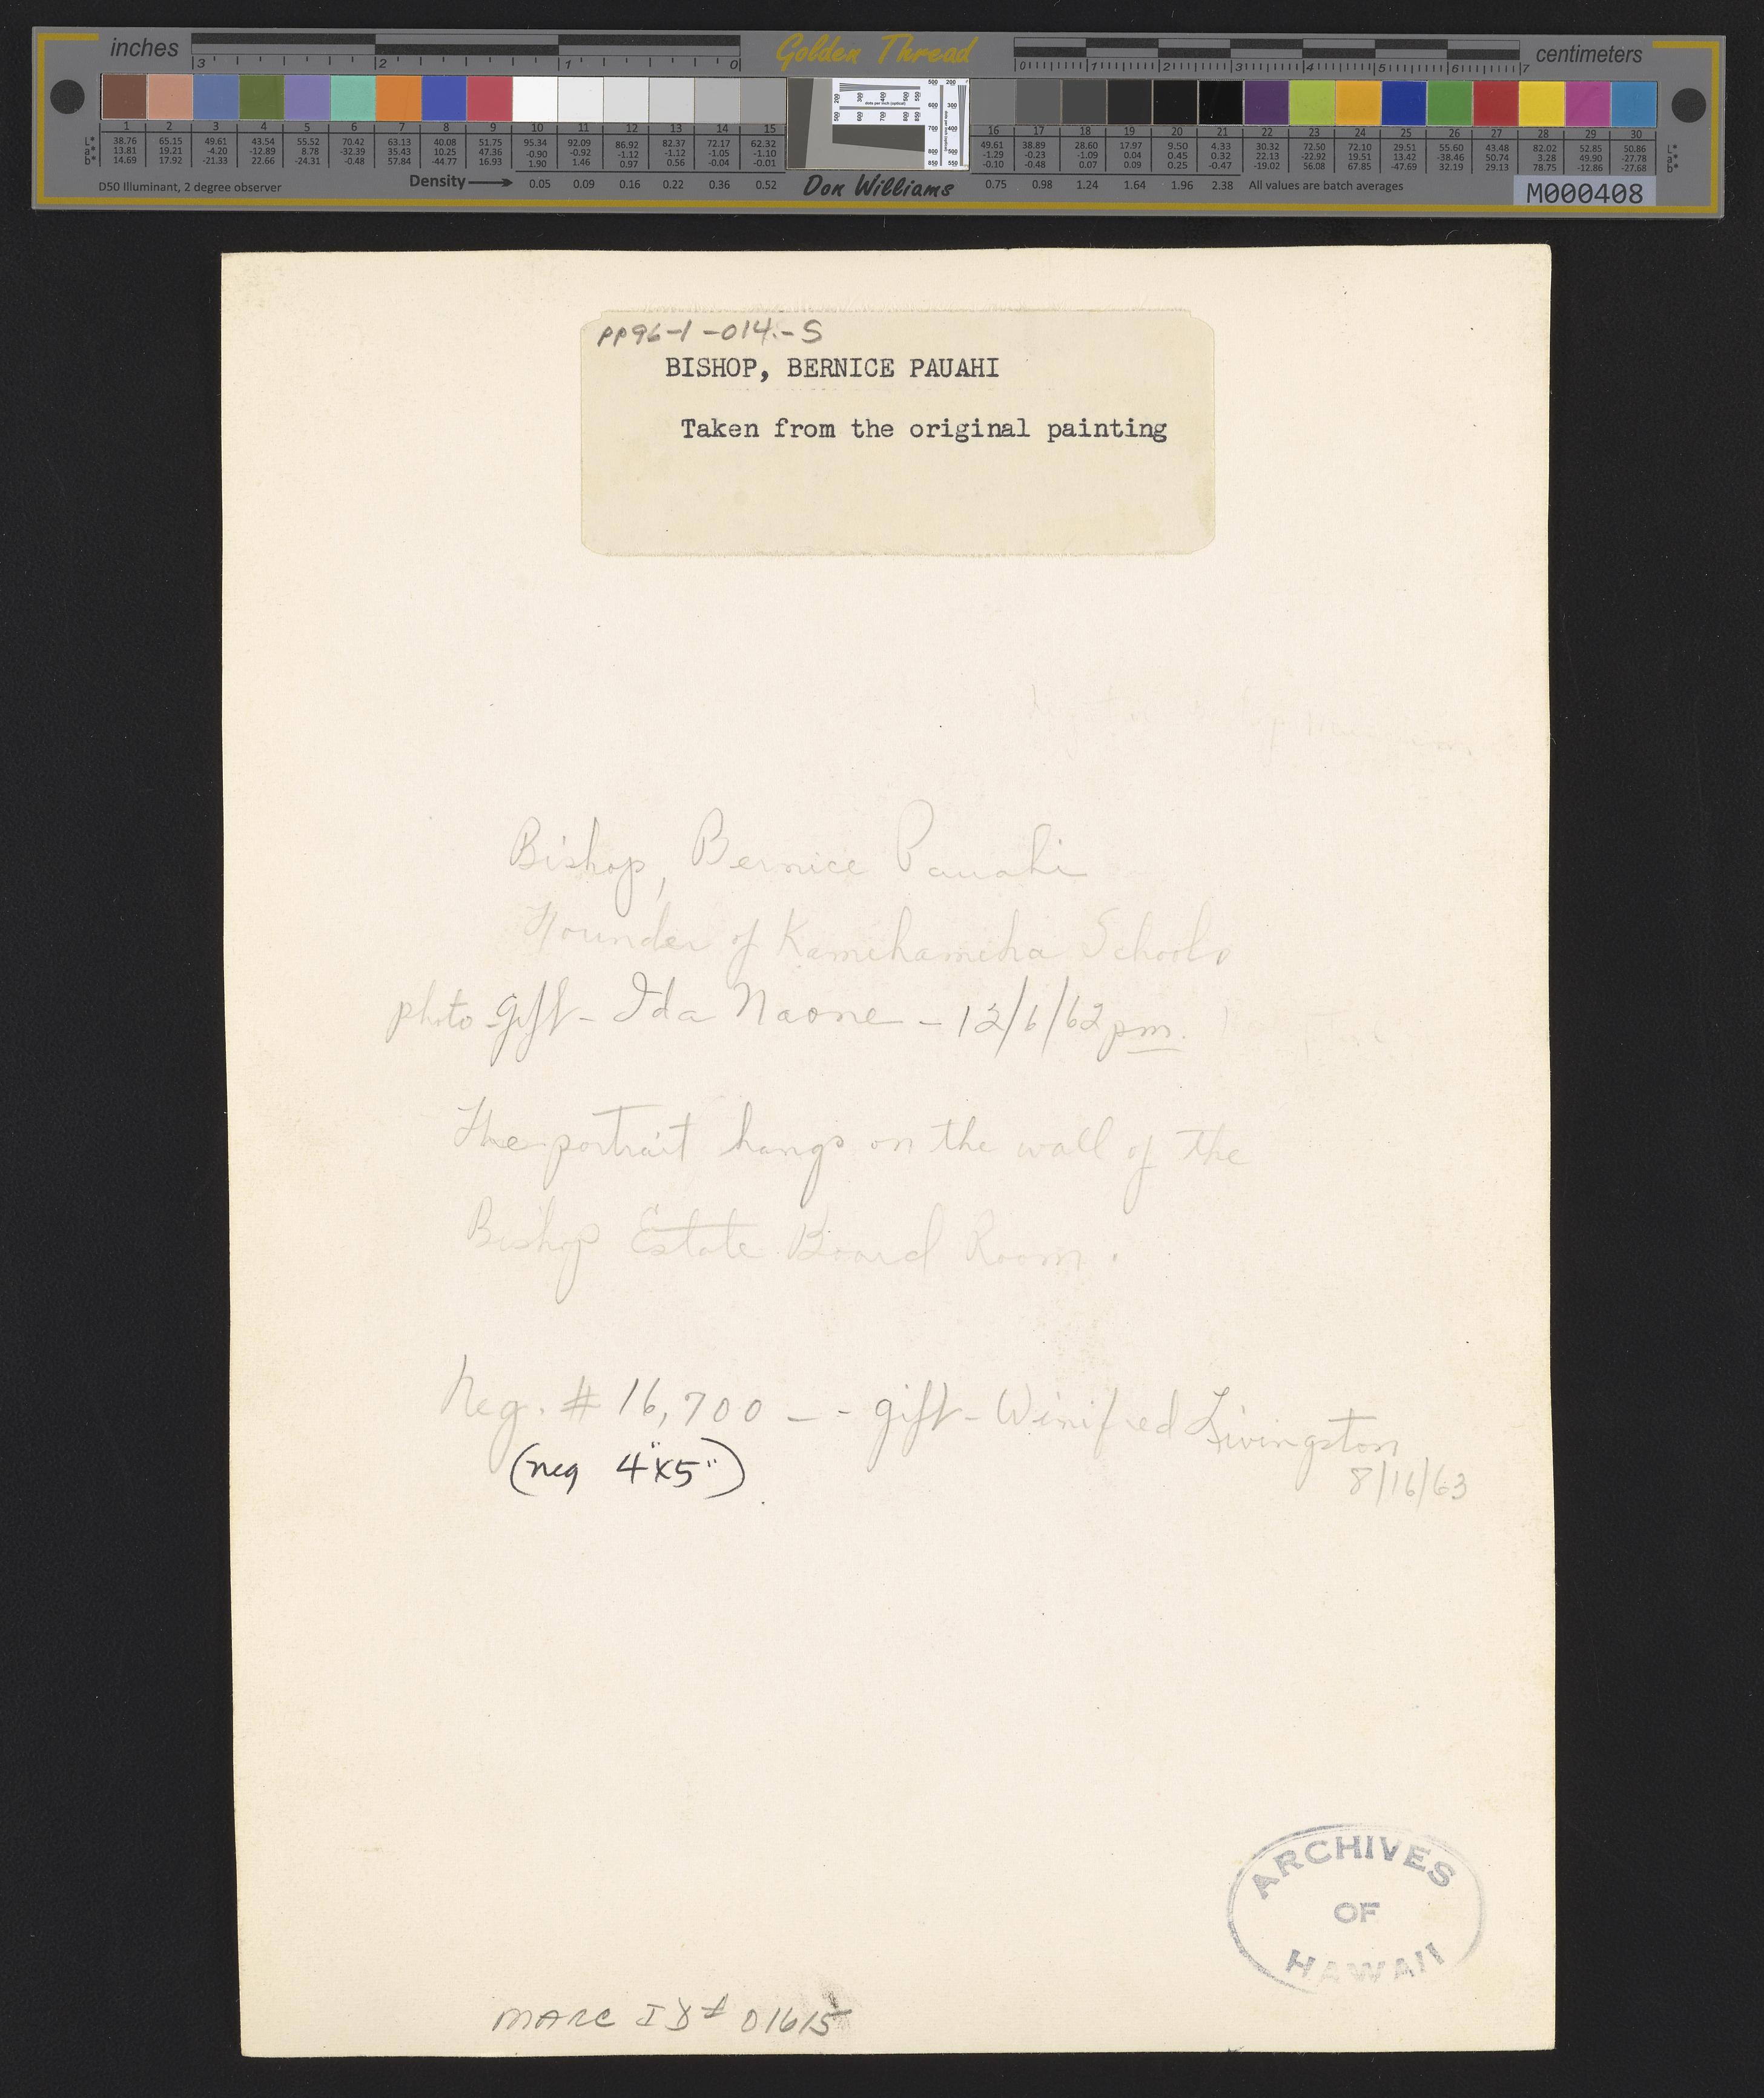 inches
Golden Thread
centimeters
3 2 1 0
0 1 2 3 4 5 6 7
1 2 3 4 5 6 7 8 9 10 11 12 13 14 15
16 17 18 19 20 21 22 23 24 25 26 27 28 29 30
L* 38.76 65.15 49.61 43.54 55.52 70.42 63.13 40.08 51.75 95.34 92.09 86.92 82.37 72.17 62.32
49.61 38.89 28.60 17.97 9.50 4.33 30.32 72.50 72.10 29.51 55.60 43.48 82.02 52.85 50.86 L*
a* 13.81 19.21 -4.20 -12.89 8.78 -32.39 35.43 10.25 47.36 -0.90 -0.92 -1.12 -1.12 -1.05 -1.10
-1.29 -0.23 -1.09 0.04 0.45 0.32 22.13 -22.92 19.51 13.42 -38.46 50.74 3.28 49.90 -27.78 a*
b* 14.69 17.92 -21.33 22.66 -24.31 -0.48 57.84 -44.77 16.93 1.90 1.46 0.97 0.56 -0.04 -0.01
-0.10 -0.48 0.07 0.09 0.25 -0.47 -19.02 56.08 67.85 -47.69 32.19 29.13 78.75 -12.86 -27.68 b*
D50 Illuminant, 2 degree observer
Density 0.05 0.09 0.16 0.22 0.36 0.52
Don Williams
0.75 0.98 1.24 1.64 1.96 2.38 All values are batch averages
M000408
PP96-1-014.-S
BISHOP, BERNICE PAUAHI
Taken from the original painting
Bishop, Bernice Pauahi
Founder of Kamehameha Schools
photo gift - Ida Naone - 12/6/62 pm.
The portrait hangs on the wall of the
Bishop Estate Board Room.
Neg. # 16,700 -- gift - Winifred Livingston
8/16/63
(neg 4"x5")
ARCHIVES
OF
HAWAII
MARC ID# 01615